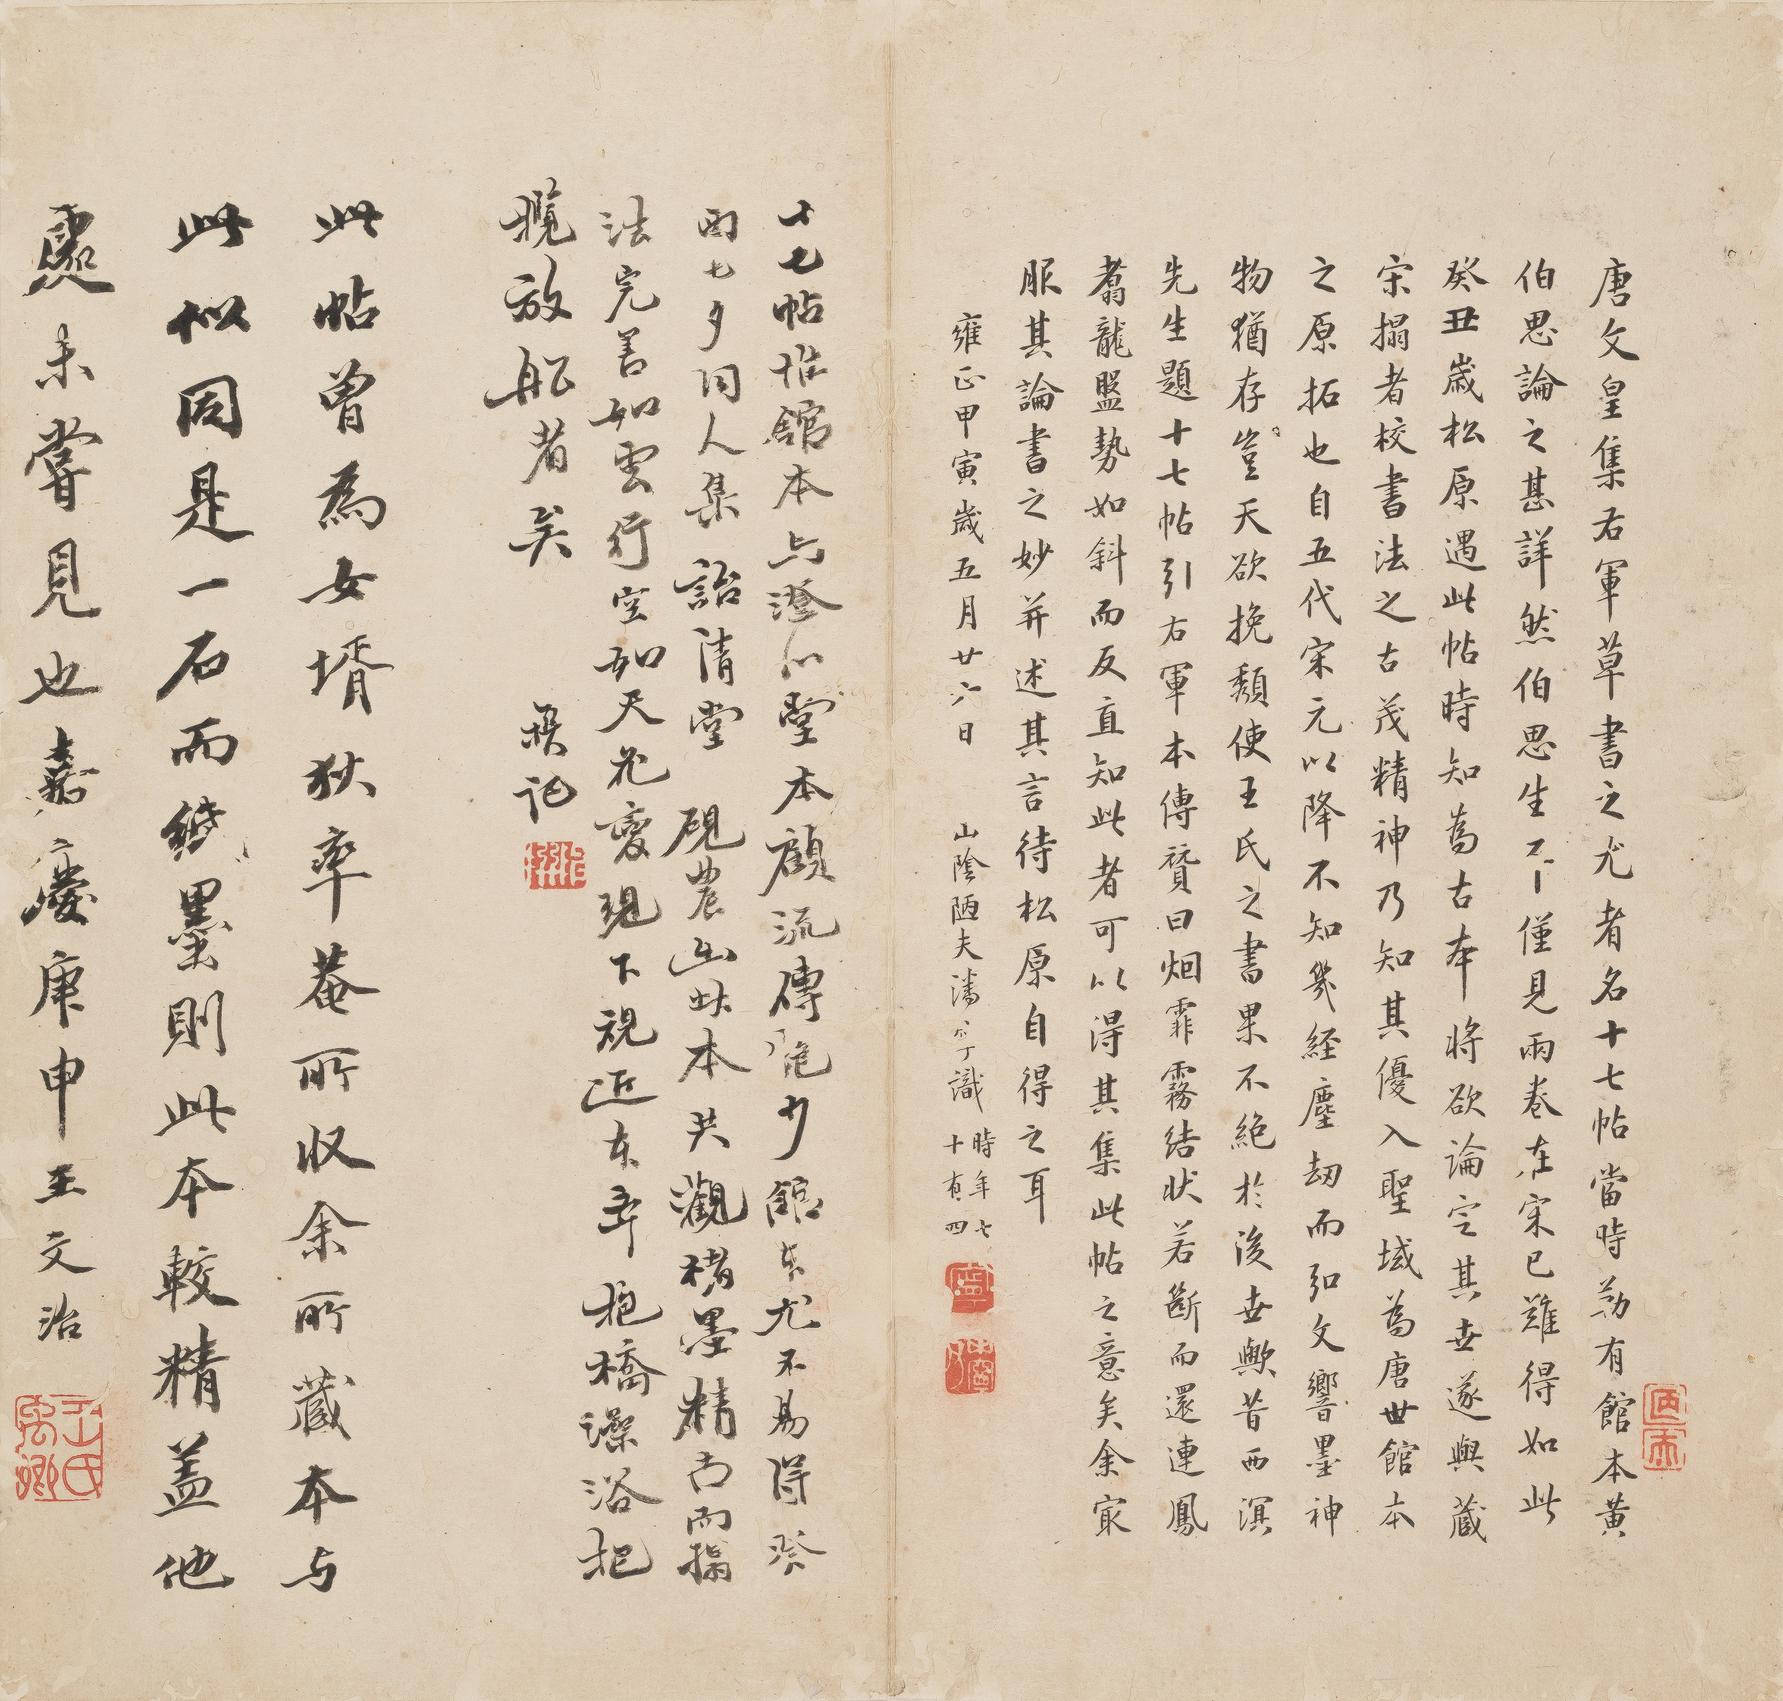 唐文皇集右軍草書之尤者名十七帖當時勒有館本黃
伯思論之甚詳然伯思生平僅見兩卷在宋已難得如此
癸丑歲松原遇此帖時知為古本將欲論定其世遂與藏
宋搨者校書法之古茂精神乃知其優入聖域為唐世館本
之原拓也自五代宋元以降不知幾經塵劫而弘文響墨神
物猶存豈天欲挽頹使王氏之書果不絕於後世歟昔西溟
先生題十七帖引右軍本傳贊曰烟霏霧結狀若斷而還連鳳
翥龍盤勢如斜而反直知此者可以得其集此帖之意矣余冣
服其論書之妙并述其言待松原自得之耳
雍正甲寅歲五月廿六日
山陰陋夫潘寧識
時年七
十有四
十七帖惟館本与澄心堂本顧流傳絕少館本尤不易得癸
酉七夕同人集詒清堂硯農出此本共觀楮墨精古而搨
法完善如雲行空如天花變現下視近東卒抱橋澡浴把
纜放船者矣
此帖曾為女壻狄率菴所收余所藏本与
此似同是一石而紙墨則此本較精蓋他
處未嘗見也嘉慶庚申王文治
王氏禹卿